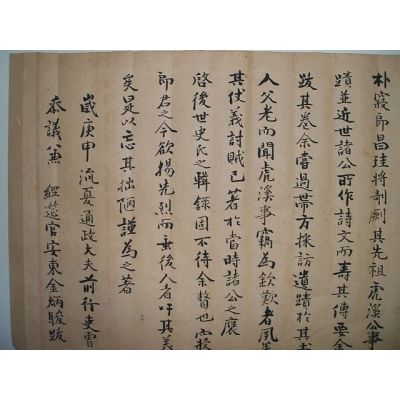 朴寢郎昌珪將剞劂其先祖虎溪公事
蹟並近世諸公所作詩文而壽其傳要余
跋其卷余嘗過帶方採訪遺蹟於其
人父老而聞虎溪事竊為欽歎者夙
其仗義討賊已著於當時諸公之褒
啓後世史氏之輯錄固不待余贅也寢
郎君之今欲揚先烈而垂後人者吁其義
矣是以忘其拙陋謹為之著
歲庚申流夏通政大夫前行吏曹
叅議兼 經筵官安東金炳駿跋